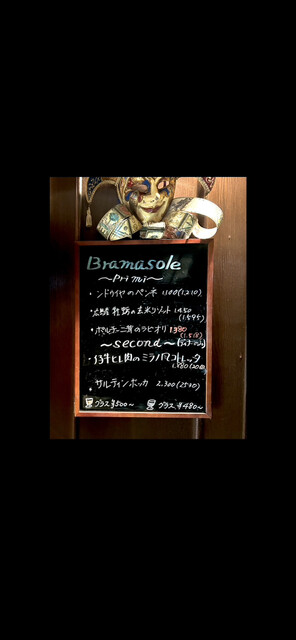 Bramasole
〜Primi〜
・ンドゥイヤのペンネ 1100(1210)
・広島 牡蛎の玄米リゾット 1450
(1.595)
・ポルチーニ茸のラビオリ 1380
(1.518)
〜second〜
・仔牛ヒレ肉のミラノ風コトレッタ
・サルティンボッカ 2.300(2530)
グラス¥500〜 グラス¥480〜